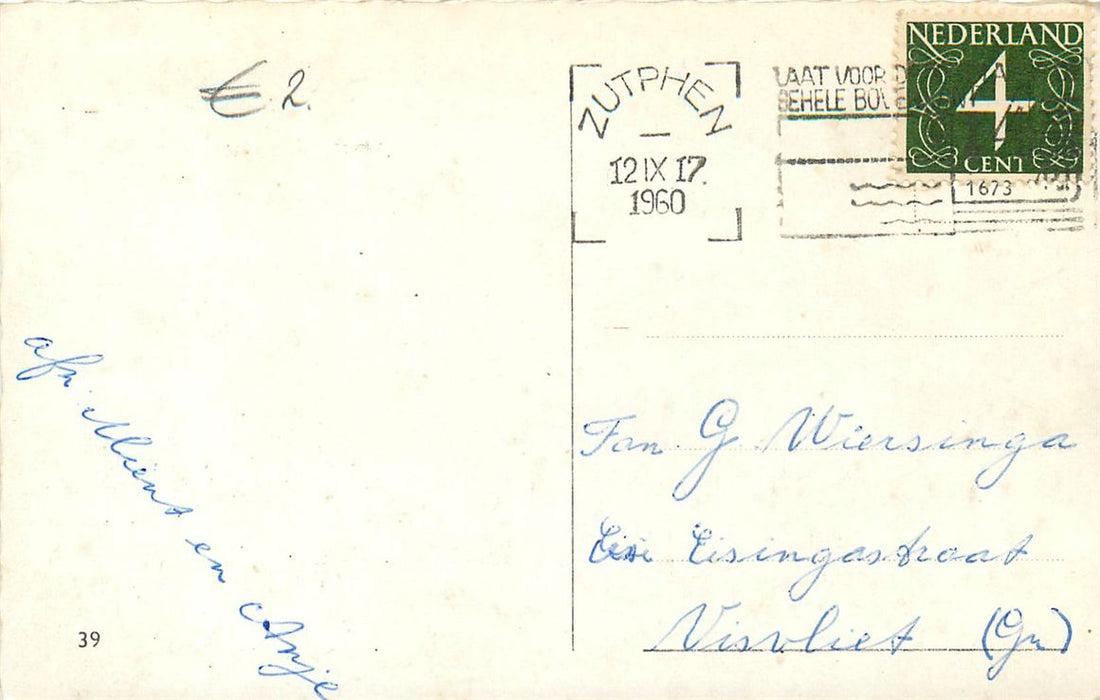 € 2.
ZUTPHEN
12 IX 17.
1960
LAAT VOOR D
GEHELE BOU
NEDERLAND
4
CENT
1673
afz. Mient en Antje
Fam G Wiersinga
Eisingastraat
Visvliet (Gn)
39